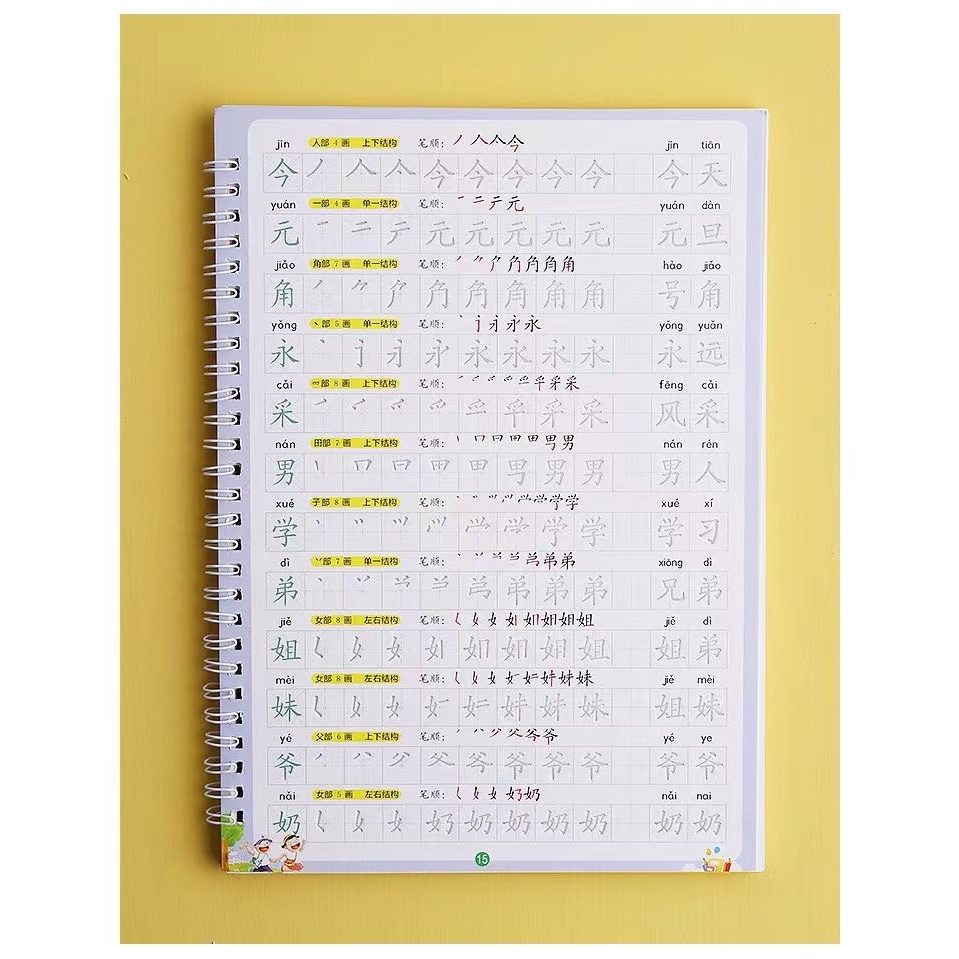 jīn 人部 4 画 上下结构 笔顺： 丿 人 亼 今 jīn tiān
今 丿 人 亼 今 今 今 今 今 今 天
yuán 一部 4 画 单一结构 笔顺： 一 二 元 yuán dàn
元 一 二 元 元 元 元 元 元 旦
jiǎo 角部 7 画 单一结构 笔顺： 角 角 hào jiǎo
角 角 角 角 角 角 号 角
yǒng 丶部 5 画 单一结构 笔顺： 丶 永 永 yǒng yuǎn
永 丶 永 永 永 永 永 远
cǎi 爫部 8 画 上下结构 笔顺： 采 fēng cǎi
采 采 采 风 采
nán 田部 7 画 上下结构 笔顺： 丨 口 田 田 男 男 nán rén
男 丨 口 田 田 男 男 男 人
xué 子部 8 画 上下结构 笔顺： 学 学 xué xí
学 学 学 学 习
dì 丷部 7 画 单一结构 笔顺： 丶 丷 弟 弟 xiōng dì
弟 丶 丷 弟 弟 弟 兄 弟
jiě 女部 8 画 左右结构 笔顺： 女 女 如 姐 姐 jiě dì
姐 女 女 姐 姐 姐 弟
mèi 女部 8 画 左右结构 笔顺： 女 女 妹 妹 jiě mèi
妹 女 女 妹 姐 妹
yé 父部 6 画 上下结构 笔顺： 父 爷 爷 yé ye
爷 父 爷 爷 爷 爷 爷 爷
nǎi 女部 5 画 左右结构 笔顺： 女 女 奶 奶 nǎi nai
奶 女 女 奶 奶 奶 奶 奶 奶 奶
15